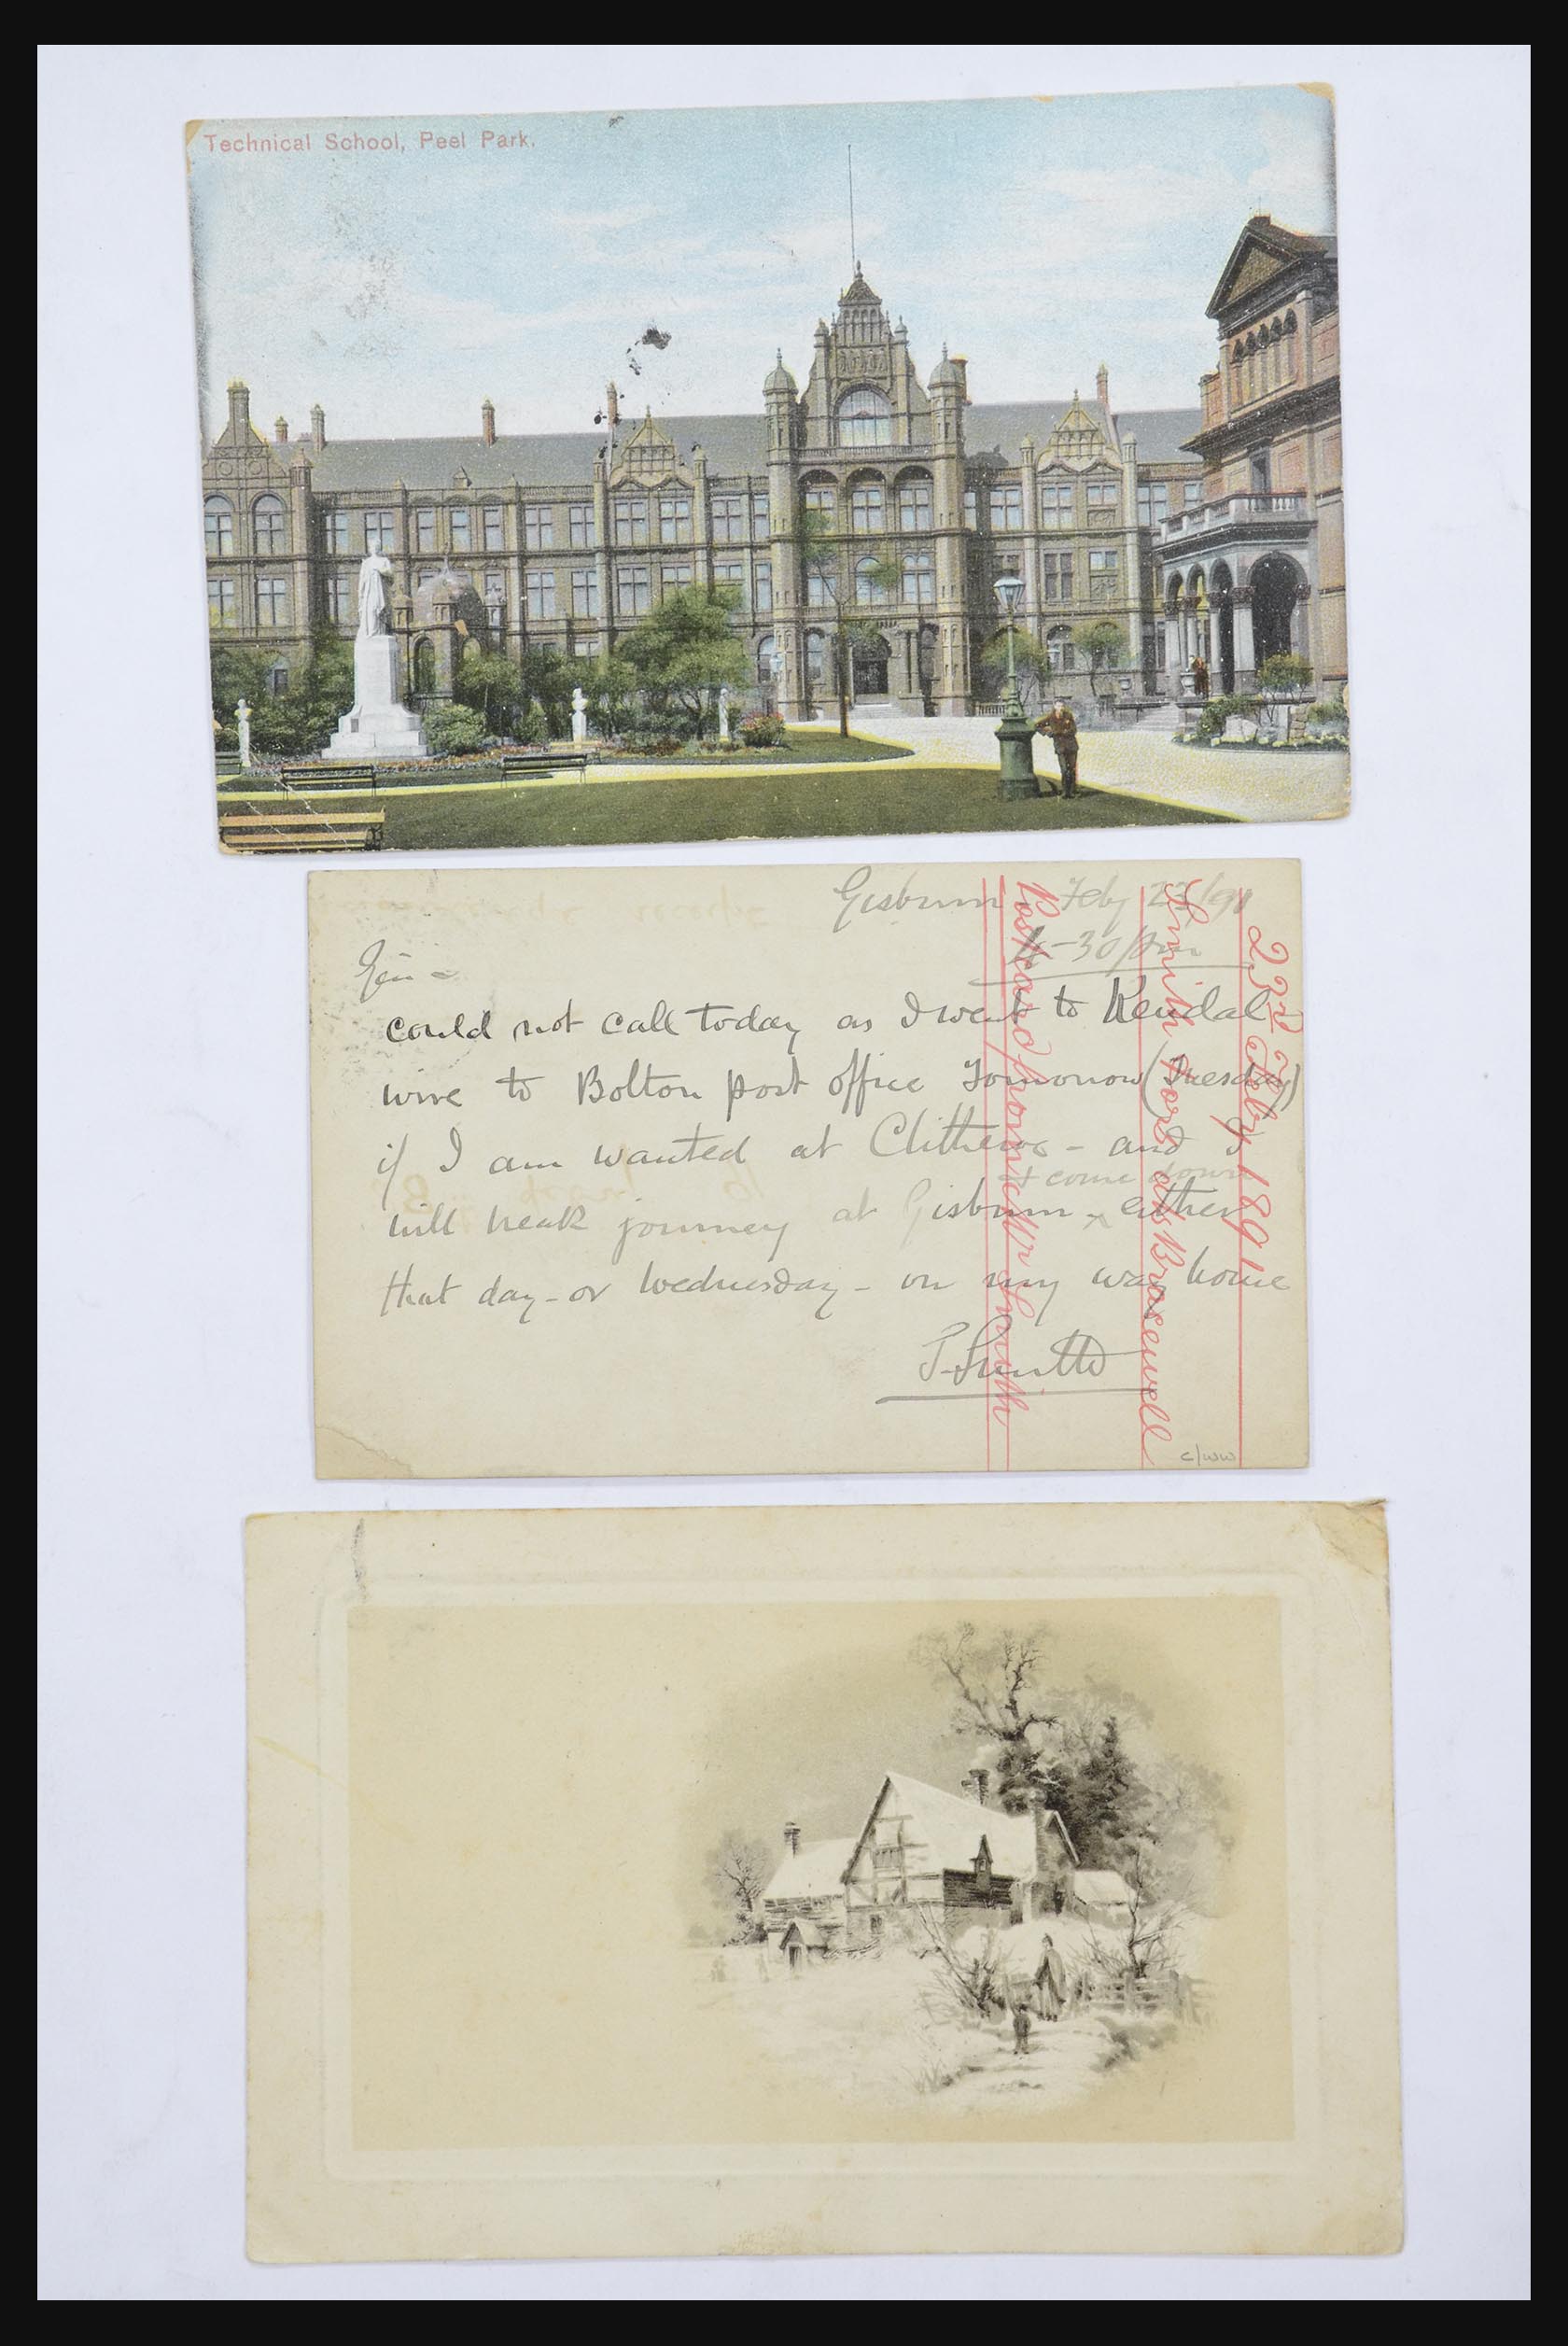 Technical School, Peel Park.
Gisburn Feby 23/91
4-30 pm
could not call today as I went to Kendal
wire to Bolton post office Tomorrow (Tuesday)
if I am wanted at Clitheroe - and I
& come down
will break journey at Gisburn - either
that day - or Wednesday - on my way home
J Smith
Postcard from Mr Smith
23rd Feby 1891
c/ww